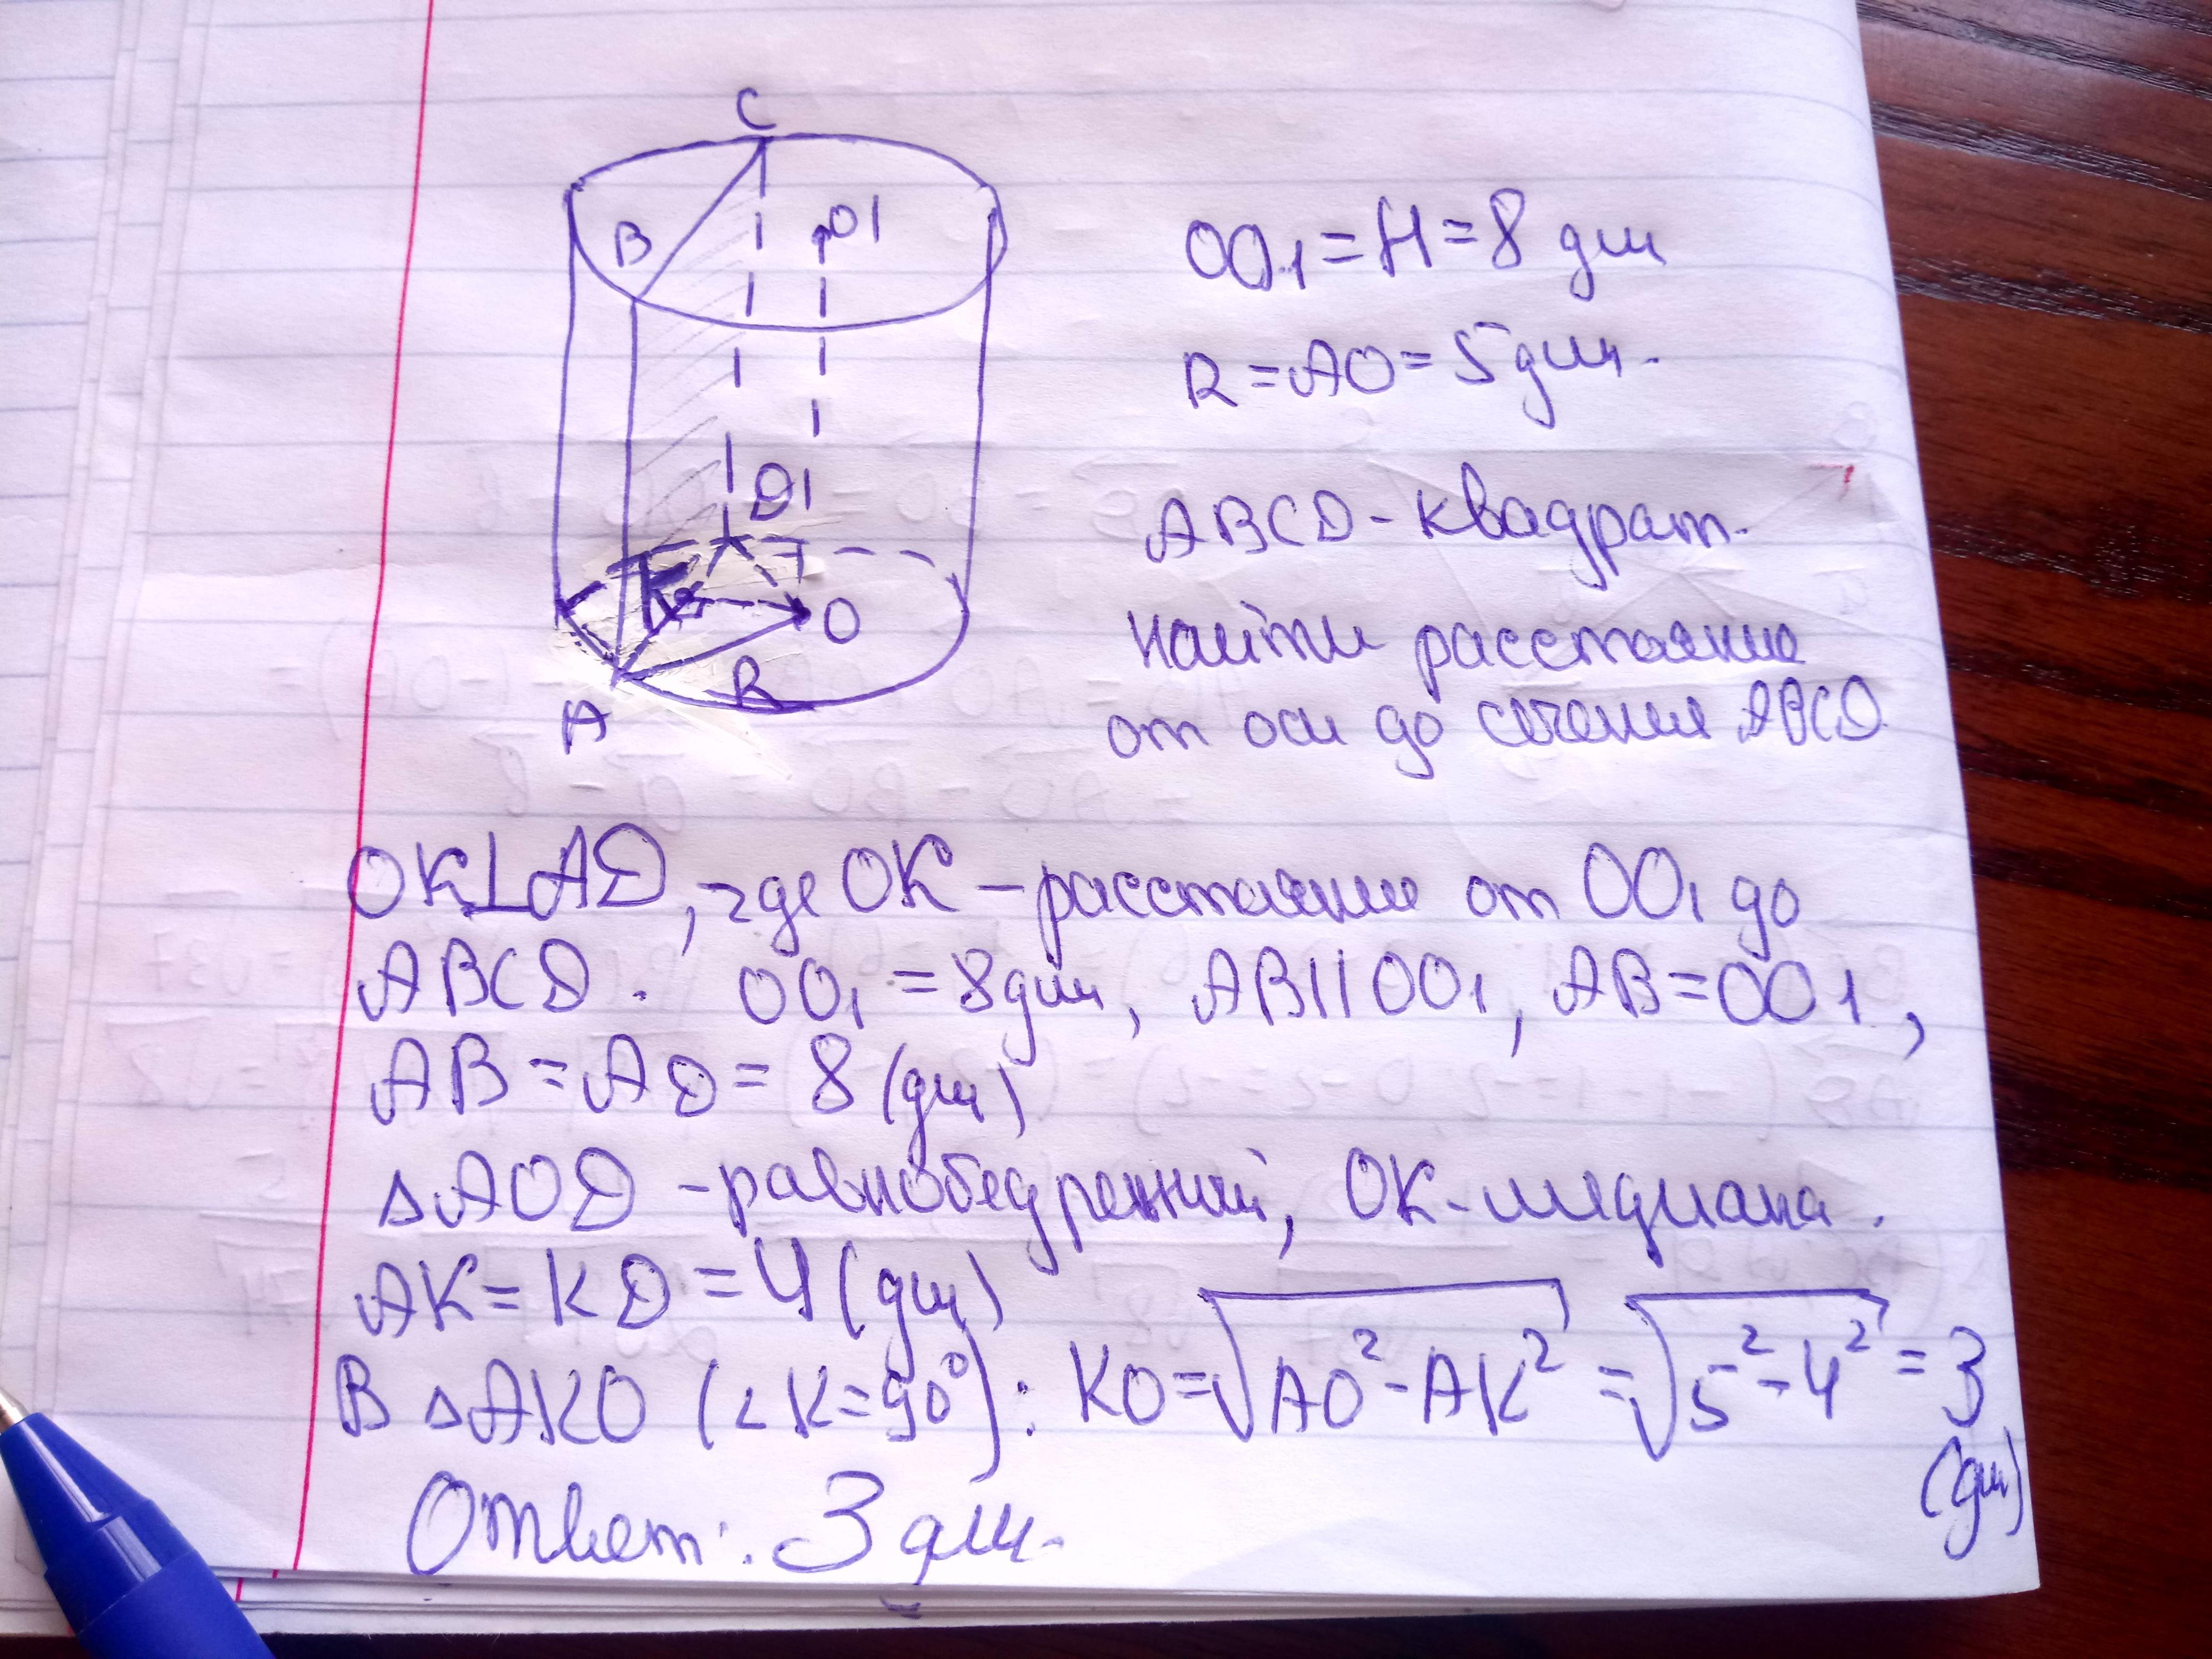 C
B
O1
D
K
O
R
A
OO1 = H = 8 дм
R = AO = 5 дм.
ABCD - квадрат.
Найти расстояние
от оси до сечения ABCD
OK⊥AD, где OK – расстояние от OO1 до
ABCD. OO1 = 8 дм, AB||OO1, AB=OO1,
AB = AD = 8 (дм)
△AOD - равнобедренный, OK - медиана.
AK = KD = 4 (дм)
В △AKO (∠K=90°): KO = √AO²-AK² = √5²-4² = 3
(дм)
Ответ: 3 дм.